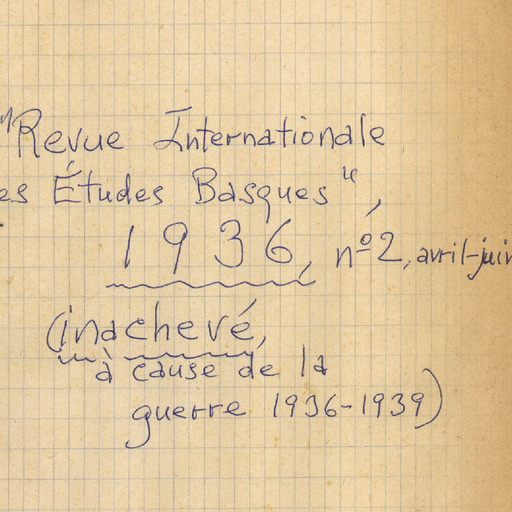 "Revue Internationale
es Études Basques",
1936, nº 2, avril-juin
(inachevé,
à cause de la
guerre 1936-1939)